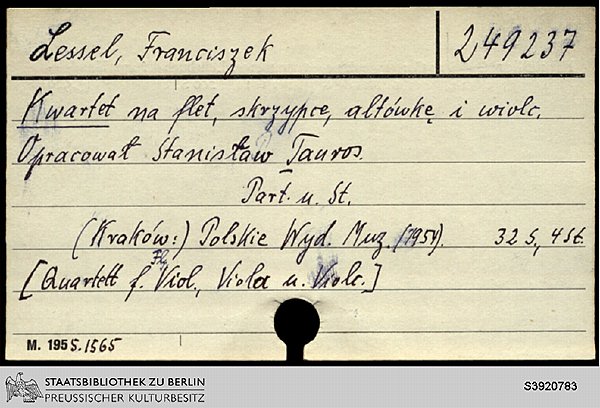 Lessel, Franciszek
249237
Kwartet na flet, skrzypce, altówkę i wiolc.
Opracował Stanisław Tauros.
Part. u. St.
(Kraków:) Polskie Wyd. Muz. (1951). 32 S., 4 St.
Fl.,
[Quartett f. Viol., Viola u. Violc.]
M. 195 5.1565
STAATSBIBLIOTHEK ZU BERLIN
PREUSSISCHER KULTURBESITZ
S3920783